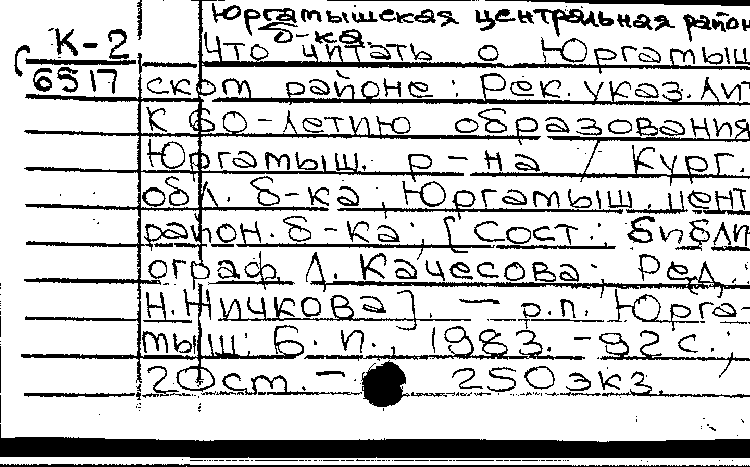 Юргамышская центральная район
б-ка
К-2
6517
Что читать о Юргамыш
ском районе: Рек. указ. лит
К 60-летию образования
Юргамыш. р-на / Кург.
обл. б-ка; Юргамыш. цент
район. б-ка; [Сост.: библи
ограф Л. Качесова; Ред.:
Н. Ничкова]. — р.п. Юрга-
мыш: Б. и., 1983. -92 с.;
20 ст. — 250 экз.